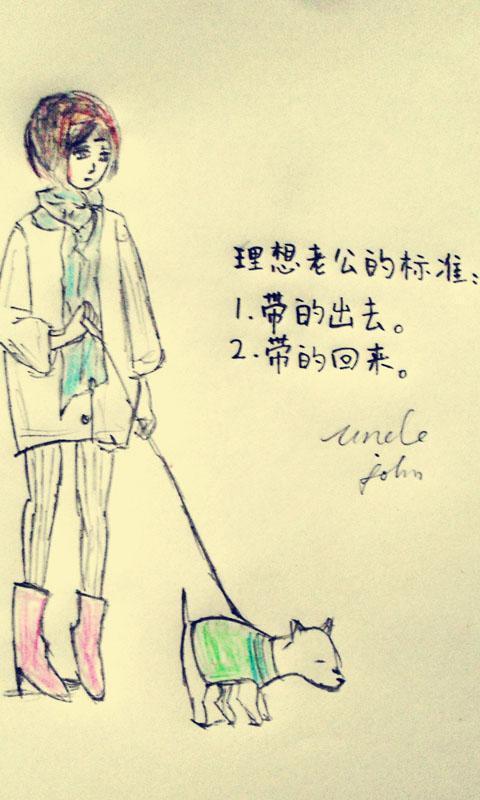 理想老公的标准：
1.带的出去。
2.带的回来。
uncle
john